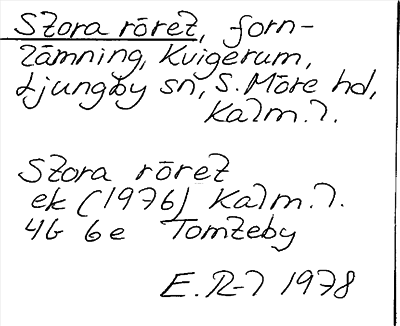 Stora röret, forn-
lämning, Kvigerum,
Ljungby sn, S. Möre hd,
Kalm.l.
Stora röret
ek (1976) Kalm.l.
4G 6e Tomteby
E.R-l 1978